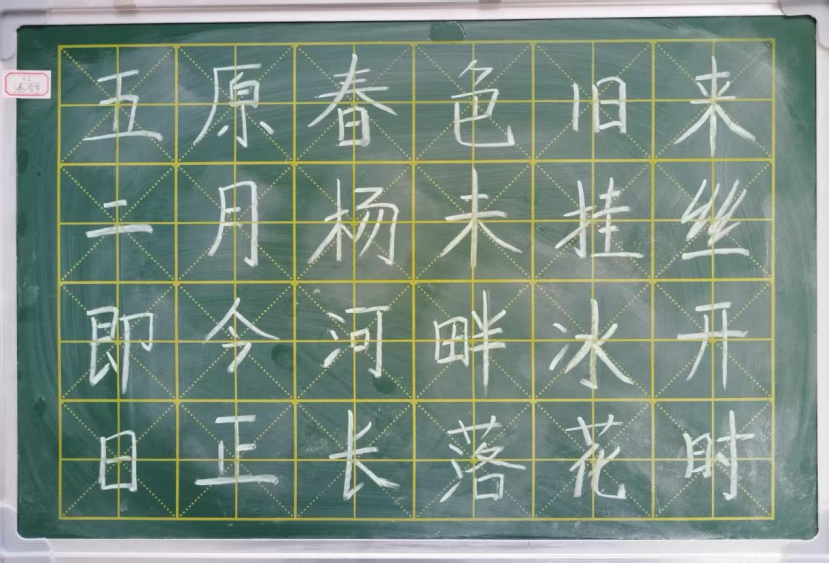 五原春色旧来
二月杨未挂丝
即今河畔冰开
日正长落花时